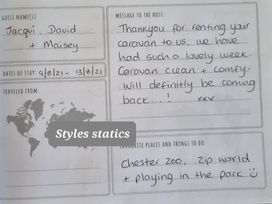 GUEST NAME(S)
Jacqui, David
+ Maisey
DATES OF STAY 9/8/21 - 13/8/21
TRAVELLED FROM:
MESSAGE TO THE HOST:
Thankyou for renting your
caravan to us, we have
had such a lovely week.
Caravan clean + comfy.
Will definitely be coming
back...! xxx
Styles statics
PLACES AND THINGS TO DO:
Chester zoo, zip world
+ playing in the park ☺